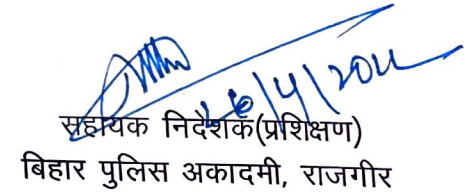 सहायक निदेशक(प्रशिक्षण)
बिहार पुलिस अकादमी, राजगीर